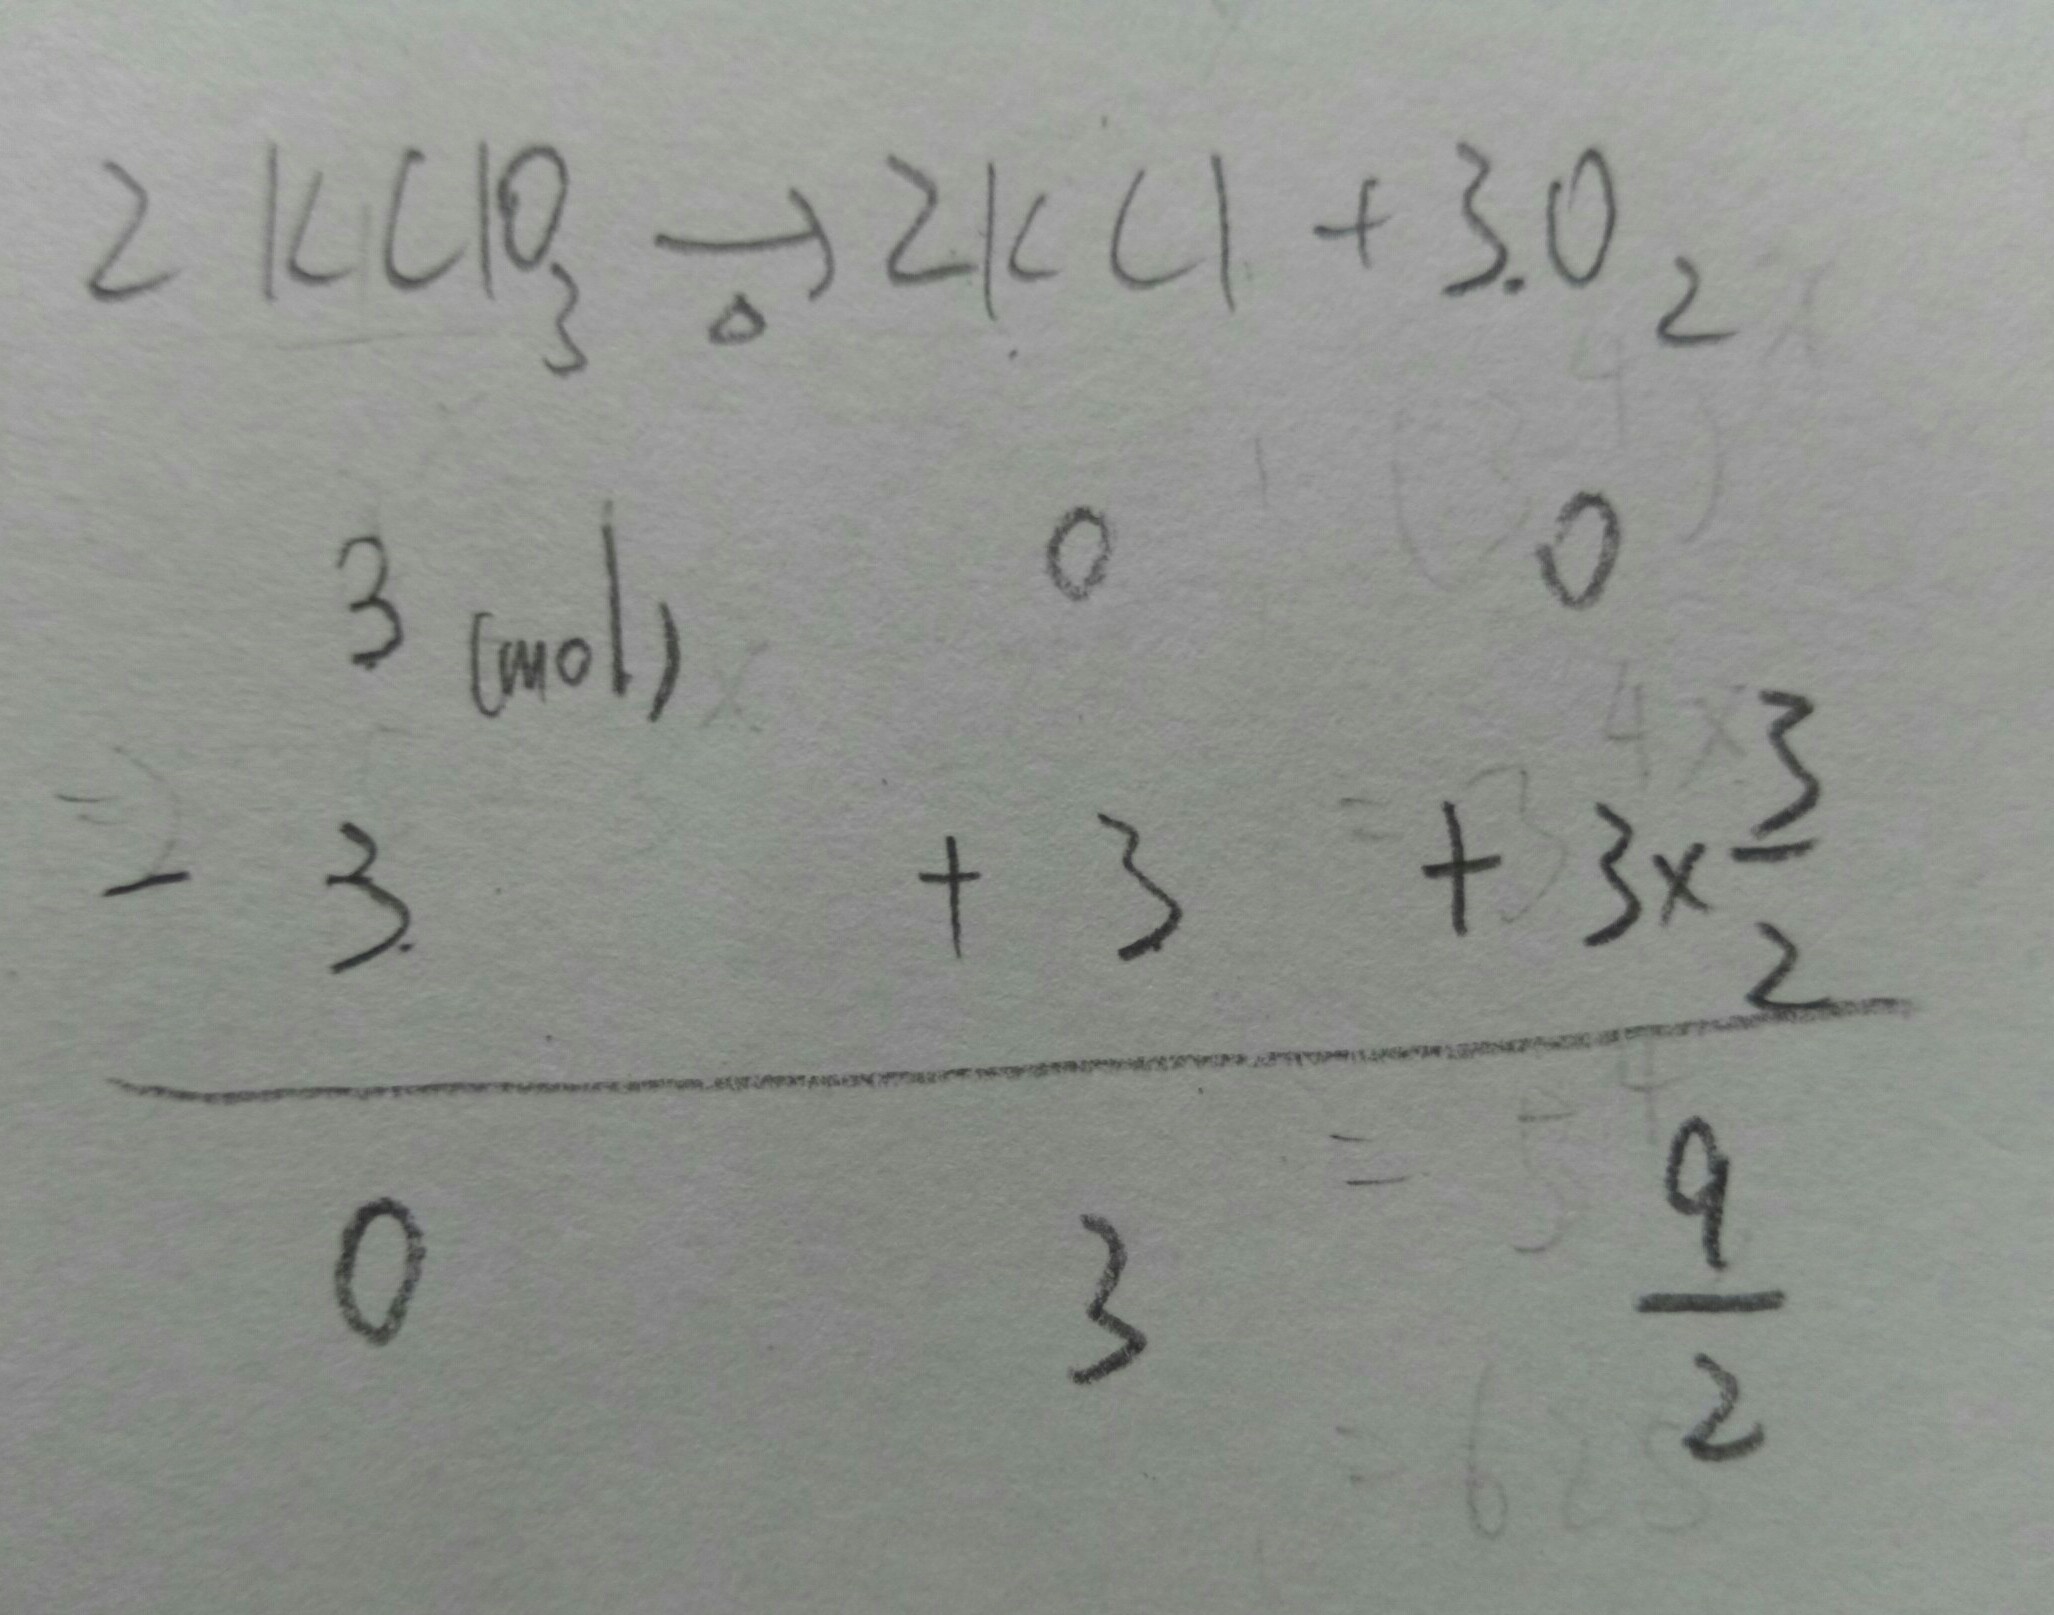 2KClO₃ →Δ 2KCl + 3O₂
3 (mol) 0 0
- 3 + 3 + 3 × 3/2
0 3 9/2